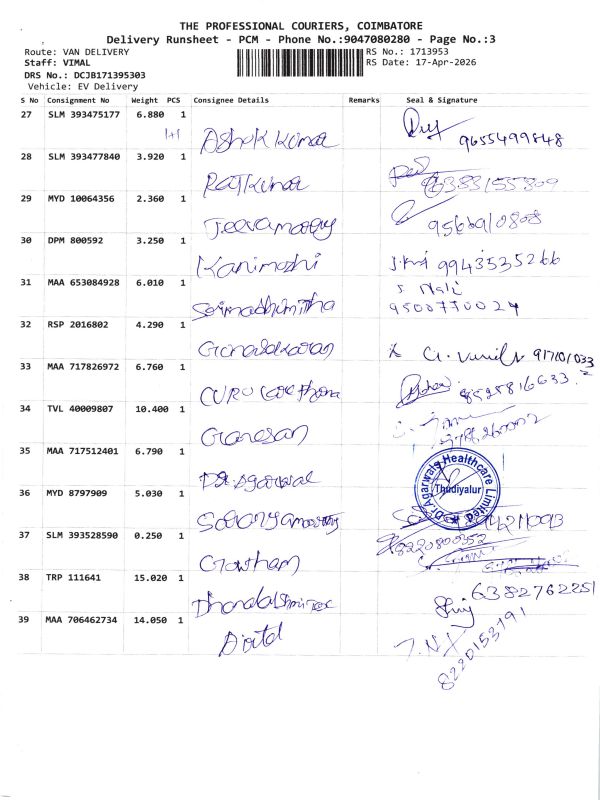 THE PROFESSIONAL COURIERS, COIMBATORE
Delivery Runsheet - PCM - Phone No.:9047080280 - Page No.:3
Route: VAN DELIVERY
Staff: VIMAL
DRS No.: DCJB171395303
Vehicle: EV Delivery
RS No.: 1713953
RS Date: 17-Apr-2026
S No Consignment No Weight PCS Consignee Details Remarks Seal & Signature
27 SLM 393475177 6.880 1
1+1
Ashok Kumar
9655499848
28 SLM 393477840 3.920 1
Rajkumar
29 MYD 10064356 2.360 1
30 DPM 800592 3.250 1
Kanimozhi
9943535266
31 MAA 653084928 6.010 1
9500770024
32 RSP 2016802 4.290 1
33 MAA 717826972 6.760 1
8525816633
34 TVL 40009807 10.400 1
Ganesan
35 MAA 717512401 6.790 1
Dr. Agarwal
Dr Agarwals Healthcare Limited
Thudiyalur
36 MYD 8797909 5.030 1
37 SLM 393528590 0.250 1
8220800352
Gowtham
38 TRP 111641 15.020 1
6382762251
39 MAA 706462734 14.050 1
8220153191